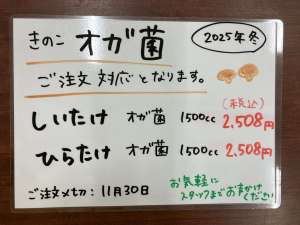 きのこ オガ菌
2025年 冬
ご注文 対応となります。
(税込)
しいたけ オガ菌 1500cc 2,508円
ひらたけ オガ菌 1500cc 2,508円
ご注文〆切：11月30日
お気軽に
スタッフまでお声かけ
ください